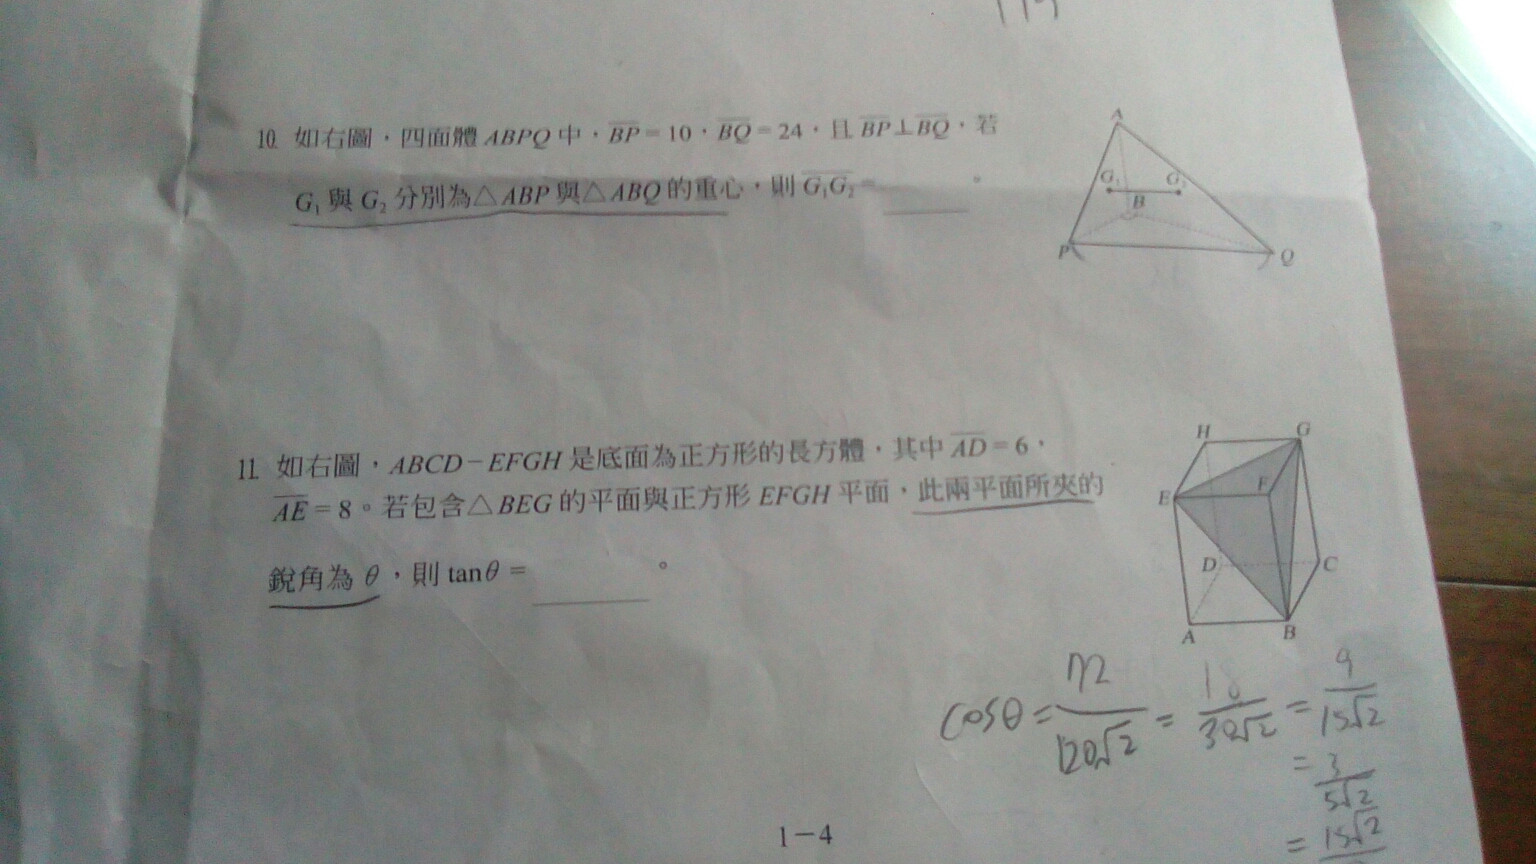 10. 如右圖，四面體 ABPQ 中，BP = 10，BQ = 24，且 BP⊥BQ，若
G₁ 與 G₂ 分別為△ABP 與△ABQ 的重心，則 G₁G₂ = ______ 。
A
G₁ G₂
B
P Q
11. 如右圖，ABCD－EFGH 是底面為正方形的長方體，其中 AD = 6，
AE = 8。若包含△BEG 的平面與正方形 EFGH 平面，此兩平面所夾的
銳角為 θ，則 tanθ = ______ 。
H G
E F
D C
A B
cosθ = 72/120√2 = 18/30√2 = 9/15√2
= 3/5√2
= 15√2
1－4